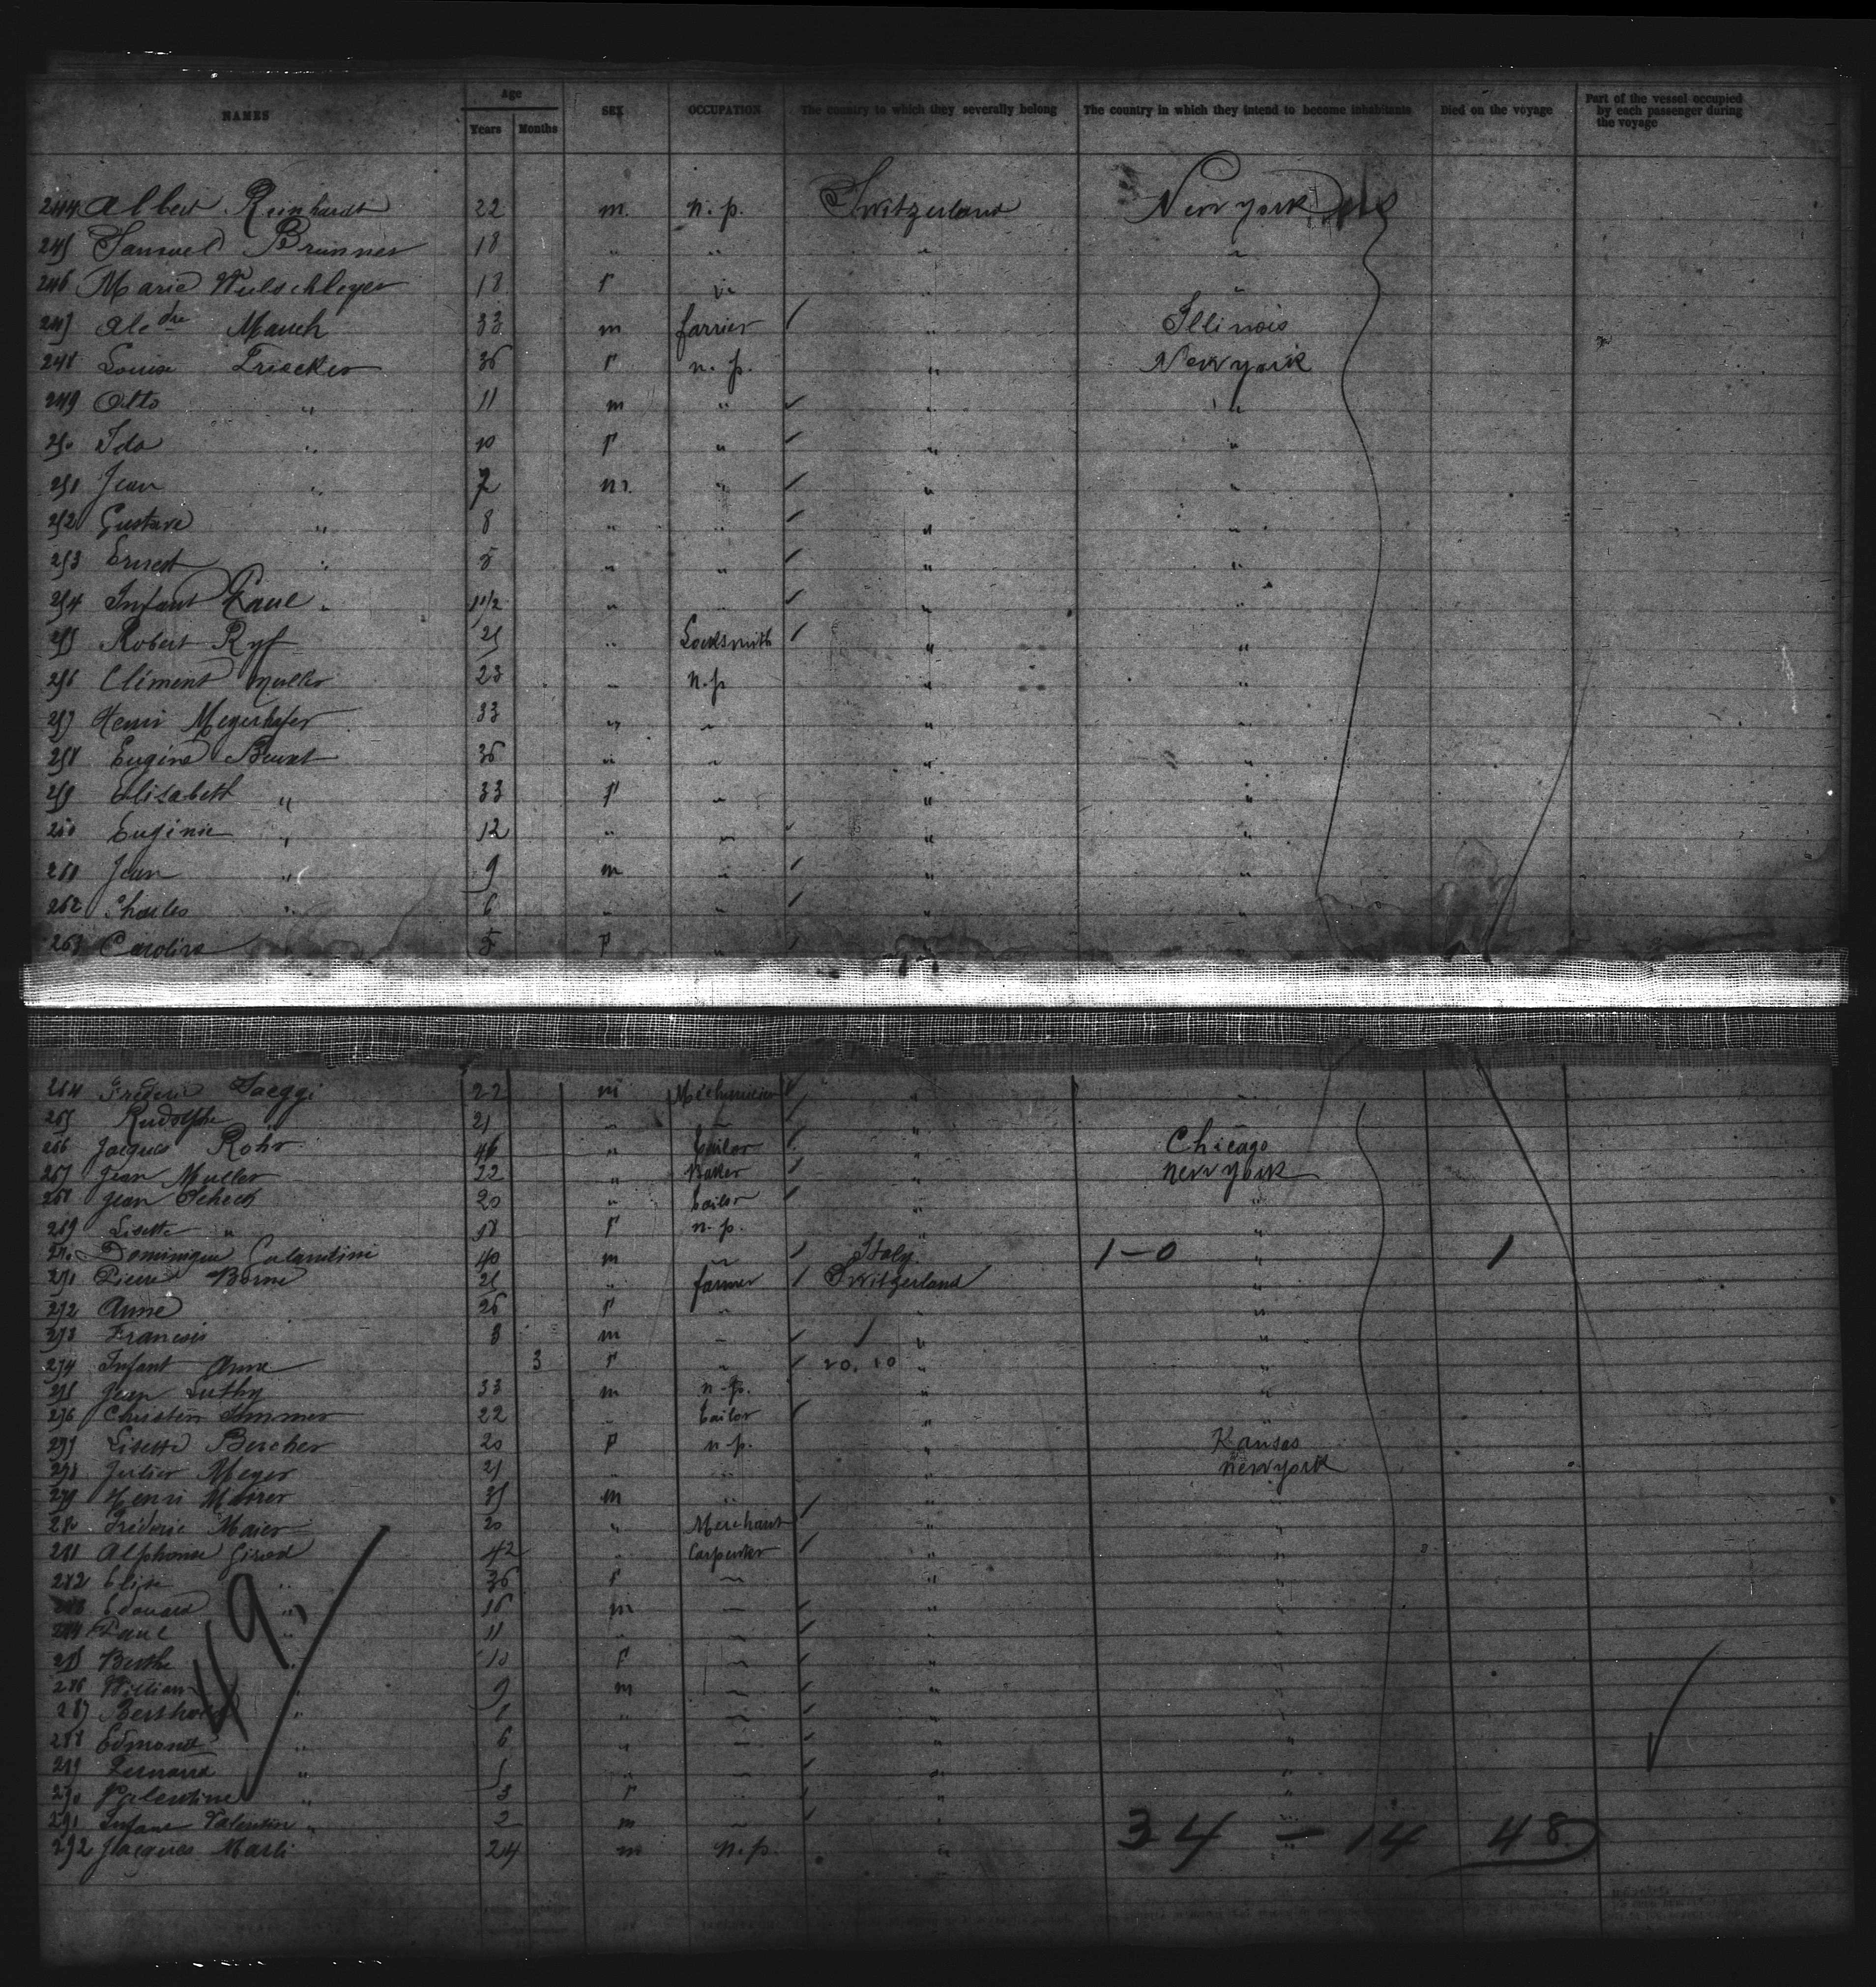 NAMES Age Years Months SEX OCCUPATION The country to which they severally belong The country in which they intend to become inhabitants Died on the voyage Part of the vessel occupied by each passenger during the voyage
244 Albert Reinhardt 22 m. n.p. Switzerland New york
245 Samuel Brunner 18 " " " "
246 Marie 18 f " " "
247 Ale dre Mauch 33 m farrier " Illinois
248 Louise Friecker 36 f n.p. " New york
249 Otto " 11 m " " "
250 Ida " 10 f " " "
251 Jean " 7 m. " " "
252 Gustave " 8 " " " "
253 Ernest " 5 " " " "
254 Infant Paul " 1 1/2 " " " "
255 Robert Ryf 21 " Locksmith " "
256 Clement Muller 23 " n.p " "
257 Henri Meyerhofer 33 " " " "
258 Eugène 36 " " " "
259 Elisabeth " 33 f " " "
260 Eugénie " 12 " " " "
261 Jean " 9 m " " "
262 Charles " 6 " " " "
263 Caroline 5 f " "
264 Frederic Jaeggi 22 m "
265 Rudolphe 21 " " "
266 Jacques Rohr 46 " tailor Chicago
267 Jean Muller 22 " Baker " New york
268 Jean Scheck 20 " tailor " "
269 Lisette " 18 f n.p. "
270 Dominique 40 m " Italy 1-0 " 1
271 Pierre Borne 21 " farmer Switzerland "
272 Anne 26 f " "
273 Francois 3 m " " "
274 Infant Anne 3 f " 20.10 " "
275 Jean Luthy 33 m n.p. " "
276 Christen 22 " tailor "
277 Lisette Bercher 20 f n.p. " Kansas
278 Meyer 21 " " " New york
279 Henri Maurer 35 m " " "
280 Fréderic Maier 20 " Merchant " "
281 Alphonse Girod 42 " Carpenter " "
282 Elise " 36 f " " "
283 Edouard " 16 m " " "
284 Paul " 11 " " " "
285 Berthe " 10 f " " "
286 William " 9 m " "
287 Berthold " " " "
288 Edmond " 6 " " " "
289 Fernand " 5 " " " "
290 Valentine " 3 f " " "
291 Infant Valentin " 2 m " "
292 Jacques Marti 24 m n.p. " "
34 - 14 48